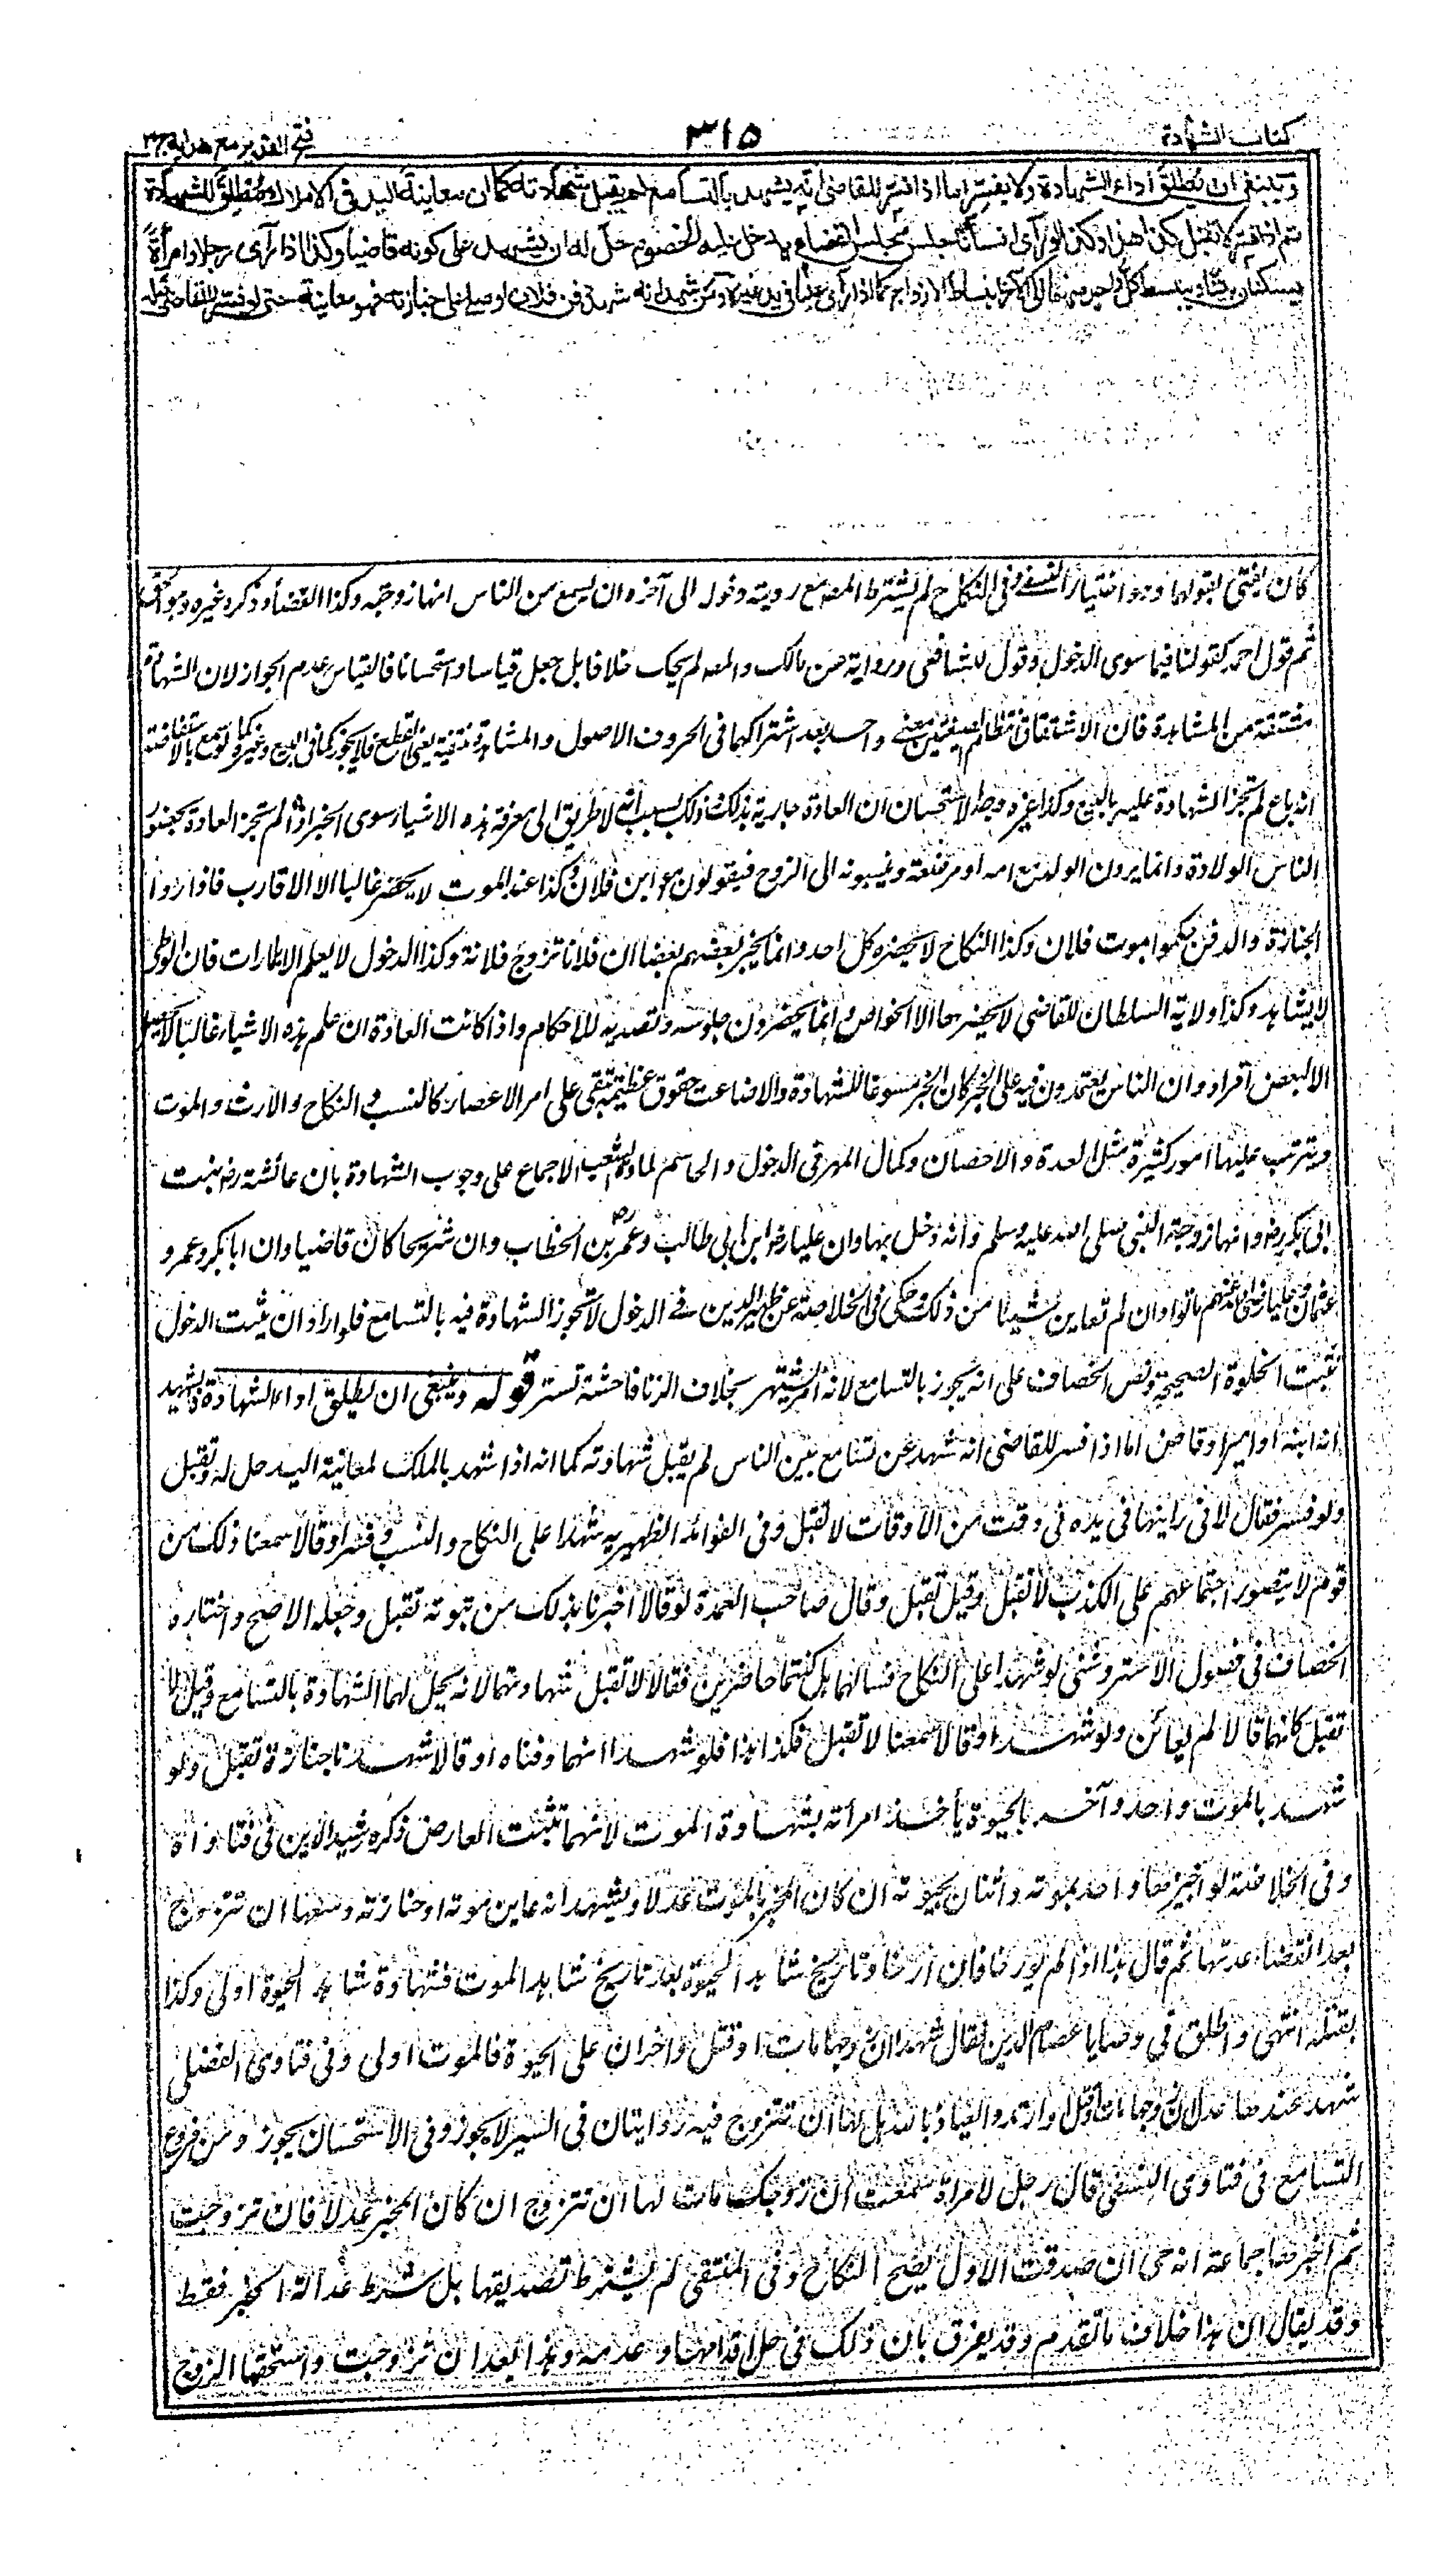 كتاب الشهادة
٣١٥
فتح القدير مع هدايه ج٣
وينبغي ان يطلق اداء الشهادة ولا يفسر اما اذا فسر للقاضي انه يشهد بالتسامع لم يقبل شهادته كما ان معاينة اليد في الاملاك مطلق للشهادة
ثم اذا فسر لا تقبل كذا هذا وكذا لو رأى انسانا جلس مجلس القضاء يدخل عليه الخصوم حل له ان يشهد على كونه قاضيا وكذا اذا رأى رجلا وامرأة
يسكنان بيتا وينبسط كل واحد منهما الى الآخر انبساط الازواج كما اذا رأى عينا في يد غيره ومن شهد انه شهد دفن فلان او صلى على جنازته فهو معاينة حتى لو فسر للقاضي قبله
كان يفتى بقولهما وهو اختيار النسفي وفي النكاح لم يشترط المص مع رويته دخوله الى آخره ان يسمع من الناس انها زوجته وكذا القضاء وذكره غيره وهو
ثم قول احمد كقولنا فيما سوى الدخول وقول للشافعي ورواية عن مالك والمص لم يحك خلافا بل جعل قياسا واستحسانا فالقياس عدم الجواز لان الشهادة
مشتقة من المشاهدة فان الاشتقاق تنظام الصيغتين معنى واحد بعد اشتراكهما في الحروف الاصول والمشاهدة منتفية يعنى القطع فلا يجوز كما في البيع وغيره كما لو سمع بالاستفاضة
انه باع لم تجز الشهادة عليه بالبيع وكذا غيره وجه الاستحسان ان العادة جارية بذلك وذلك بسبب انه لا طريق الى معرفة هذه الاشياء سوى الخبر اذ لم تجر العادة بحضور
الناس الولادة وانما يرون الولد مع امه او مرضعة وينسبونه الى الزوج فيقولون هو ابن فلان وكذا عند الموت لا يحضر غالبا الا الاقارب فاذا رأوا
الجنازة والدفن حكموا بموت فلان وكذا النكاح لا يحضره كل احد وانما يخبر بعضهم بعضا ان فلانا تزوج فلانة وكذا الدخول لا يعلم الا بامارات فان الوطى
لا يشاهد وكذا ولاية السلطان للقاضي لا يحضرها الا الخواص وانما يحضرون جلوسه وتصديه للاحكام واذا كانت العادة ان علم هذه الاشياء غالبا لا
الا لبعض افراد وان الناس يعتمدون فيه على الخبر كان الخبر مسوغا للشهادة والا ضاعت حقوق عظيمة تبقى على امر الاعصار كالنسب والنكاح والارث والموت
ويترتب عليها امور كثيرة مثل العدة والاحصان وكمال المهر في الدخول والحاسم لمادة الشغب الاجماع على وجوب الشهادة بان عائشة رض بنت
ابي بكر رض وانها زوجة النبي صلى الله عليه وسلم وانه دخل بها وان عليا رض ابن ابي طالب وعمر رض بن الخطاب وان شريحا كان قاضيا وان ابا بكر وعمر و
عثمان وعليا رضى الله عنهم ماتوا وان لم نعاين شيئا من ذلك وحكى في الخلاصة عن ظهير الدين في الدخول لا تجوز الشهادة فيه بالتسامع فلو اراد ان يثبت الدخول
يثبت الخلوة الصحيحة ونص الخصاف على انه يجوز بالتسامع لانه امر يشتهر بخلاف الزنا فاحشة تستر قوله وينبغي ان يطلق اداء الشهادة فيشهد
انه ابنه او امير او قاض اما اذا فسر للقاضي انه شهد عن تسامع بين الناس لم يقبل شهادته كما انه اذا شهد بالملك لمعاينة اليد حل له وتقبل
ولو فسر فقال لاني رايتها في يده في وقت من الاوقات لا تقبل وفي الفوائد الظهيرية شهدا على النكاح والنسب وفسرا وقالا سمعنا ذلك من
قوم لا يتصور اجتماعهم على الكذب لا تقبل وقيل تقبل وقال صاحب العمدة لو قالا اخبرنا بذلك من نثق به تقبل وجعله الاصح واختاره
الخصاف في فصول الاستروشني لو شهدا على النكاح فسألهما هل كنتما حاضرين فقالا لا تقبل شهادتهما لانه يحل لهما الشهادة بالتسامع وقيل لا
تقبل كانهما قالا لم نعاين ولو شهدا وقالا سمعنا لا تقبل فكذا هذا فلو شهدا انهما دفناه او قالا شهدنا جنازة تقبل ولو
شهد بالموت واحد وآخر بالحيوة يأخذ امرأته بشهادة الموت لانهما تثبت العارض ذكره رشيد الدين في فتاواه
وفي الخلاصة لو اخبرها واحد بموته واثنان بحيوته ان كان المخبر بالموت عدلا ويشهد انه عاين موته او جنازته وسعها ان تتزوج
بعد انقضاء عدتها ثم قال هذا اذا لم يورخا فان ارخا وتاريخ شاهد الحيوة بعد تاريخ شاهد الموت فشهادة شاهد الحيوة اولى وكذا
بقتله انتهى واطلق في وصايا عصام الدين فقال شهدا ان زوجها مات او قتل وآخران على الحيوة فالموت اولى وفي فتاوى الفضلى
شهد عندها عدل ان زوجها مات او قتل او ارتد والعياذ بالله هل لها ان تتزوج فيه روايتان في السير لا يجوز وفي الاستحسان يجوز ومن فروع
التسامع في فتاوى النسفي قال رجل لامرأة سمعت ان زوجك مات لها ان تتزوج ان كان المخبر عدلا فان تزوجت
ثم اخبرها جماعة انه حى ان صدقت الاول يصح النكاح وفي المنتقى لم يشترط تصديقها بل شرط عدالة المخبر فقط
وقد يقال ان هذا خلاف ما تقدم وقد يفرق بان ذلك في حل اقدامها وعدمه وهذا بعد ان تزوجت واستحقها الزوج